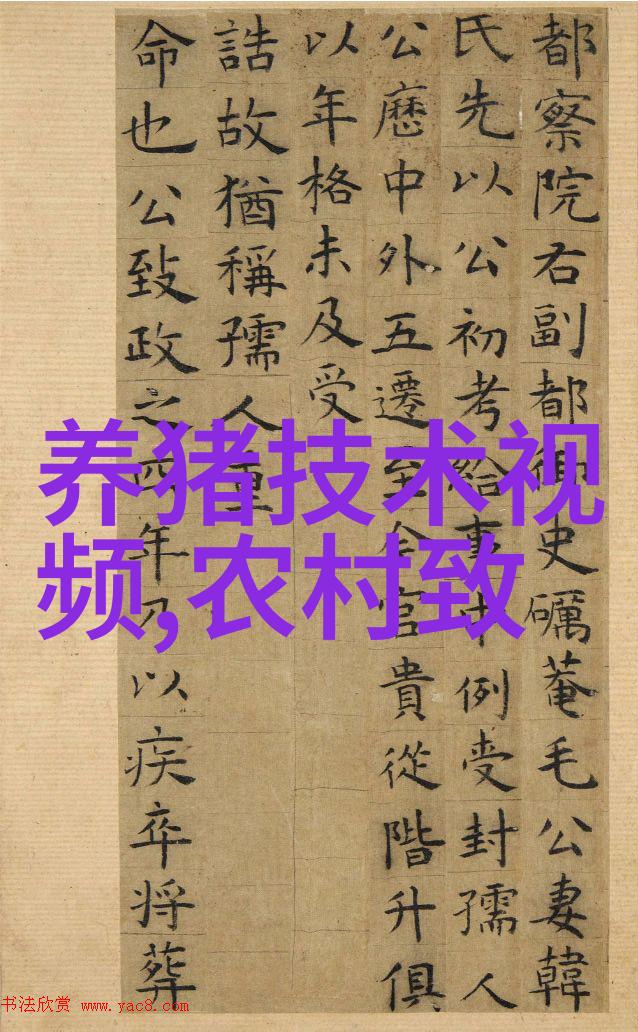 都察院右副都御史礪菴毛公妻韓
氏先以公初考給事中例受封孺人
公歷中外五遷至今官貴從階升俱
以年格未及受
誥故猶稱孺人重
命也公致政之四年乃以疾卒将葬
养猪技术视
频,农村致
书法欣赏 www.yac8.com